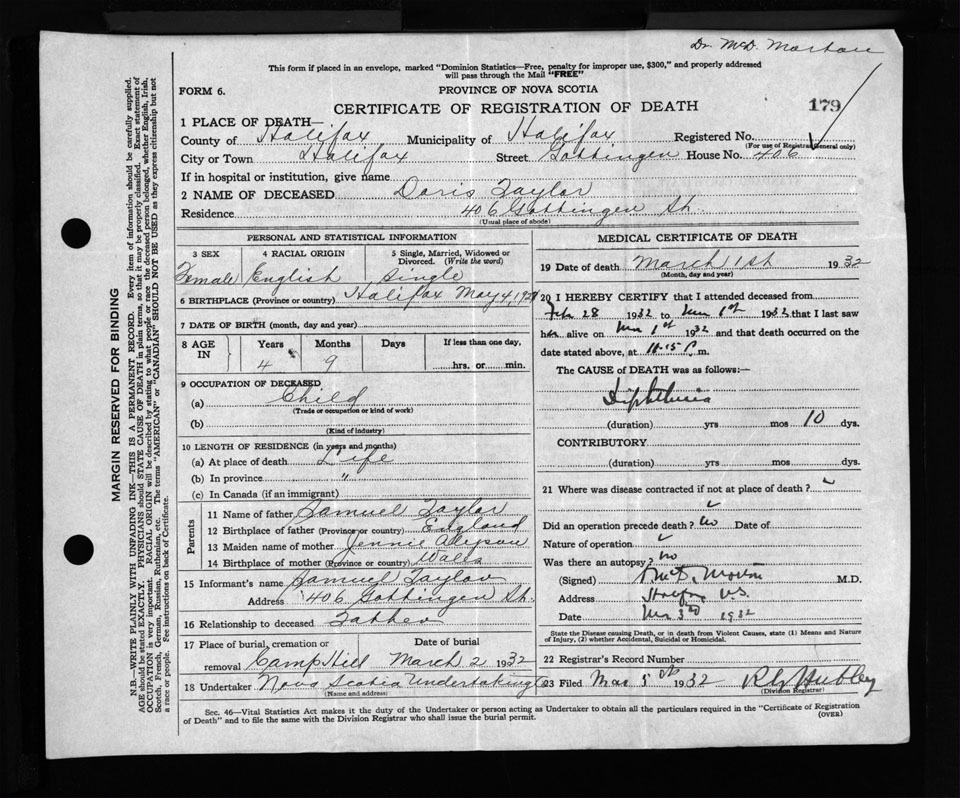 Dr. McD. Morton
This form if placed in an envelope, marked "Dominion Statistics—Free, penalty for improper use, $300," and properly addressed
will pass through the Mail "FREE"
FORM 6.
PROVINCE OF NOVA SCOTIA
CERTIFICATE OF REGISTRATION OF DEATH
179
1 PLACE OF DEATH—
County of Halifax Municipality of Halifax Registered No.
(For use of Registrar General only)
City or Town Halifax Street Gottingen House No. 406
If in hospital or institution, give name
2 NAME OF DECEASED Doris Taylor
Residence 406 Gottingen St.
(Usual place of abode)
PERSONAL AND STATISTICAL INFORMATION
3 SEX 4 RACIAL ORIGIN 5 Single, Married, Widowed or
Divorced. (Write the word)
Female English Single
6 BIRTHPLACE (Province or country) Halifax May 4, 192
7 DATE OF BIRTH (month, day and year)
8 AGE IN Years Months Days If less than one day,
4 9 hrs. or min.
9 OCCUPATION OF DECEASED
(a) Child
(Trade or occupation or kind of work)
(b)
(Kind of industry)
10 LENGTH OF RESIDENCE (in years and months)
(a) At place of death Life
(b) In province "
(c) In Canada (if an immigrant)
Parents
11 Name of father Samuel Taylor
12 Birthplace of father (Province or country) England
13 Maiden name of mother Jennie
14 Birthplace of mother (Province or country) Wales
15 Informant's name Samuel Taylor
Address 406 Gottingen St.
16 Relationship to deceased Father
17 Place of burial, cremation or Date of burial
removal Camp Hill March 2 1932
18 Undertaker Nova Scotia Undertaking
(Name and address)
MEDICAL CERTIFICATE OF DEATH
19 Date of death March 1st 1932
(Month, day and year)
20 I HEREBY CERTIFY that I attended deceased from
Feb 28 1932 to Mar 1st 1932 that I last saw
her alive on Mar 1st 1932 and that death occurred on the
date stated above, at 10.15 P.m.
The CAUSE of DEATH was as follows:—
Diphtheria
(duration) yrs mos 10 dys.
CONTRIBUTORY
(duration) yrs mos dys.
21 Where was disease contracted if not at place of death?
Did an operation precede death? no Date of
Nature of operation
Was there an autopsy? no
(Signed) McD. Morton M.D.
Address Halifax N.S.
Date Mar 3rd 1932
State the Disease causing Death, or in death from Violent Causes, state (1) Means and Nature
of Injury, (2) whether Accidental, Suicidal or Homicidal.
22 Registrar's Record Number
23 Filed Mar 5th 1932 Hubley
(Division Registrar)
Sec. 46—Vital Statistics Act makes it the duty of the Undertaker or person acting as Undertaker to obtain all the particulars required in the "Certificate of Registration
of Death" and to file the same with the Division Registrar who shall issue the burial permit.
(OVER)
MARGIN RESERVED FOR BINDING
N.B.—WRITE PLAINLY WITH UNFADING INK—THIS IS A PERMANENT RECORD. Every item of information should be carefully supplied.
AGE should be stated EXACTLY. PHYSICIANS should STATE CAUSE OF DEATH in plain terms, so that it may be properly classified. Exact statement of
OCCUPATION is very important. RACIAL ORIGIN will be described by stating to what people or race the deceased person belonged, whether English, Irish,
Scotch, French, German, Russian, Ruthenian, etc. The terms "AMERICAN" or "CANADIAN" SHOULD NOT BE USED as they express citizenship but not
a race or people. See instructions on back of Certificate.